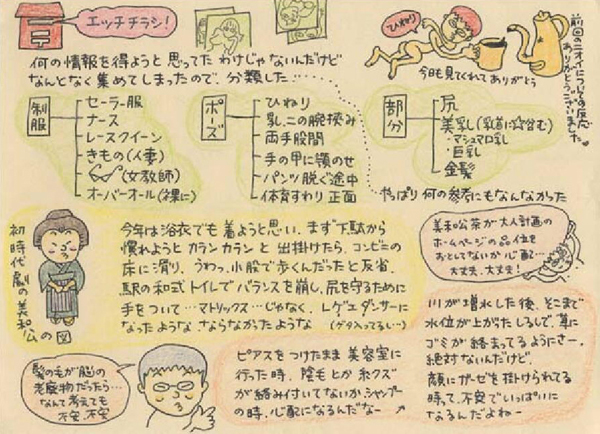 エッチチラシ!
ひねり
前回のニオイについての反応
ありがとうございました。
今日も見てくれてありがとう
何の情報を得ようと思ってたわけじゃないんだけど
なんとなく集めてしまったので、分類した…
制服
セーラー服
ナース
レースクイーン
きもの(人妻)
(女教師)
オーバーオール(裸に)
ポーズ
ひねり
乳、二の腕挟み
両手股間
手の甲に顎のせ
パンツ脱ぐ途中
体育すわり 正面
部分
尻
美乳(乳首に
・マシュマロ乳
・巨乳
金髪
やっぱり何の参考にもなんなかった
初時代劇の美和公の図
今年は浴衣でも着ようと思い、まず下駄から
慣れようとカランカランと出掛けたら、コンビニの
床に滑り、うわっ、小股で歩くんだったと反省。
駅の和式トイレでバランスを崩し、尻を守るために
手をついて…マトリックス…じゃなく、レゲエダンサーに
なったような ならなかったような
美和公茶が大人計画の
ホームページの品位を
おとしてないか心配…
大丈夫、大丈夫!
髪の毛が脳の
老廃物だったら…
なんて考えても
不安、不安
ピアスをつけたまま美容室に
行った時、陰毛とか糸クズ
が絡み付いてないかシャンプー
の時、心配になるんだなー
川が増水した後、そこまで
水位が上がったしるしで、草に
ゴミが絡まってるようにさー。
絶対ないんだけど。
顔にガーゼを掛けられてる
時って、不安でいっぱいに
なるんだよねー